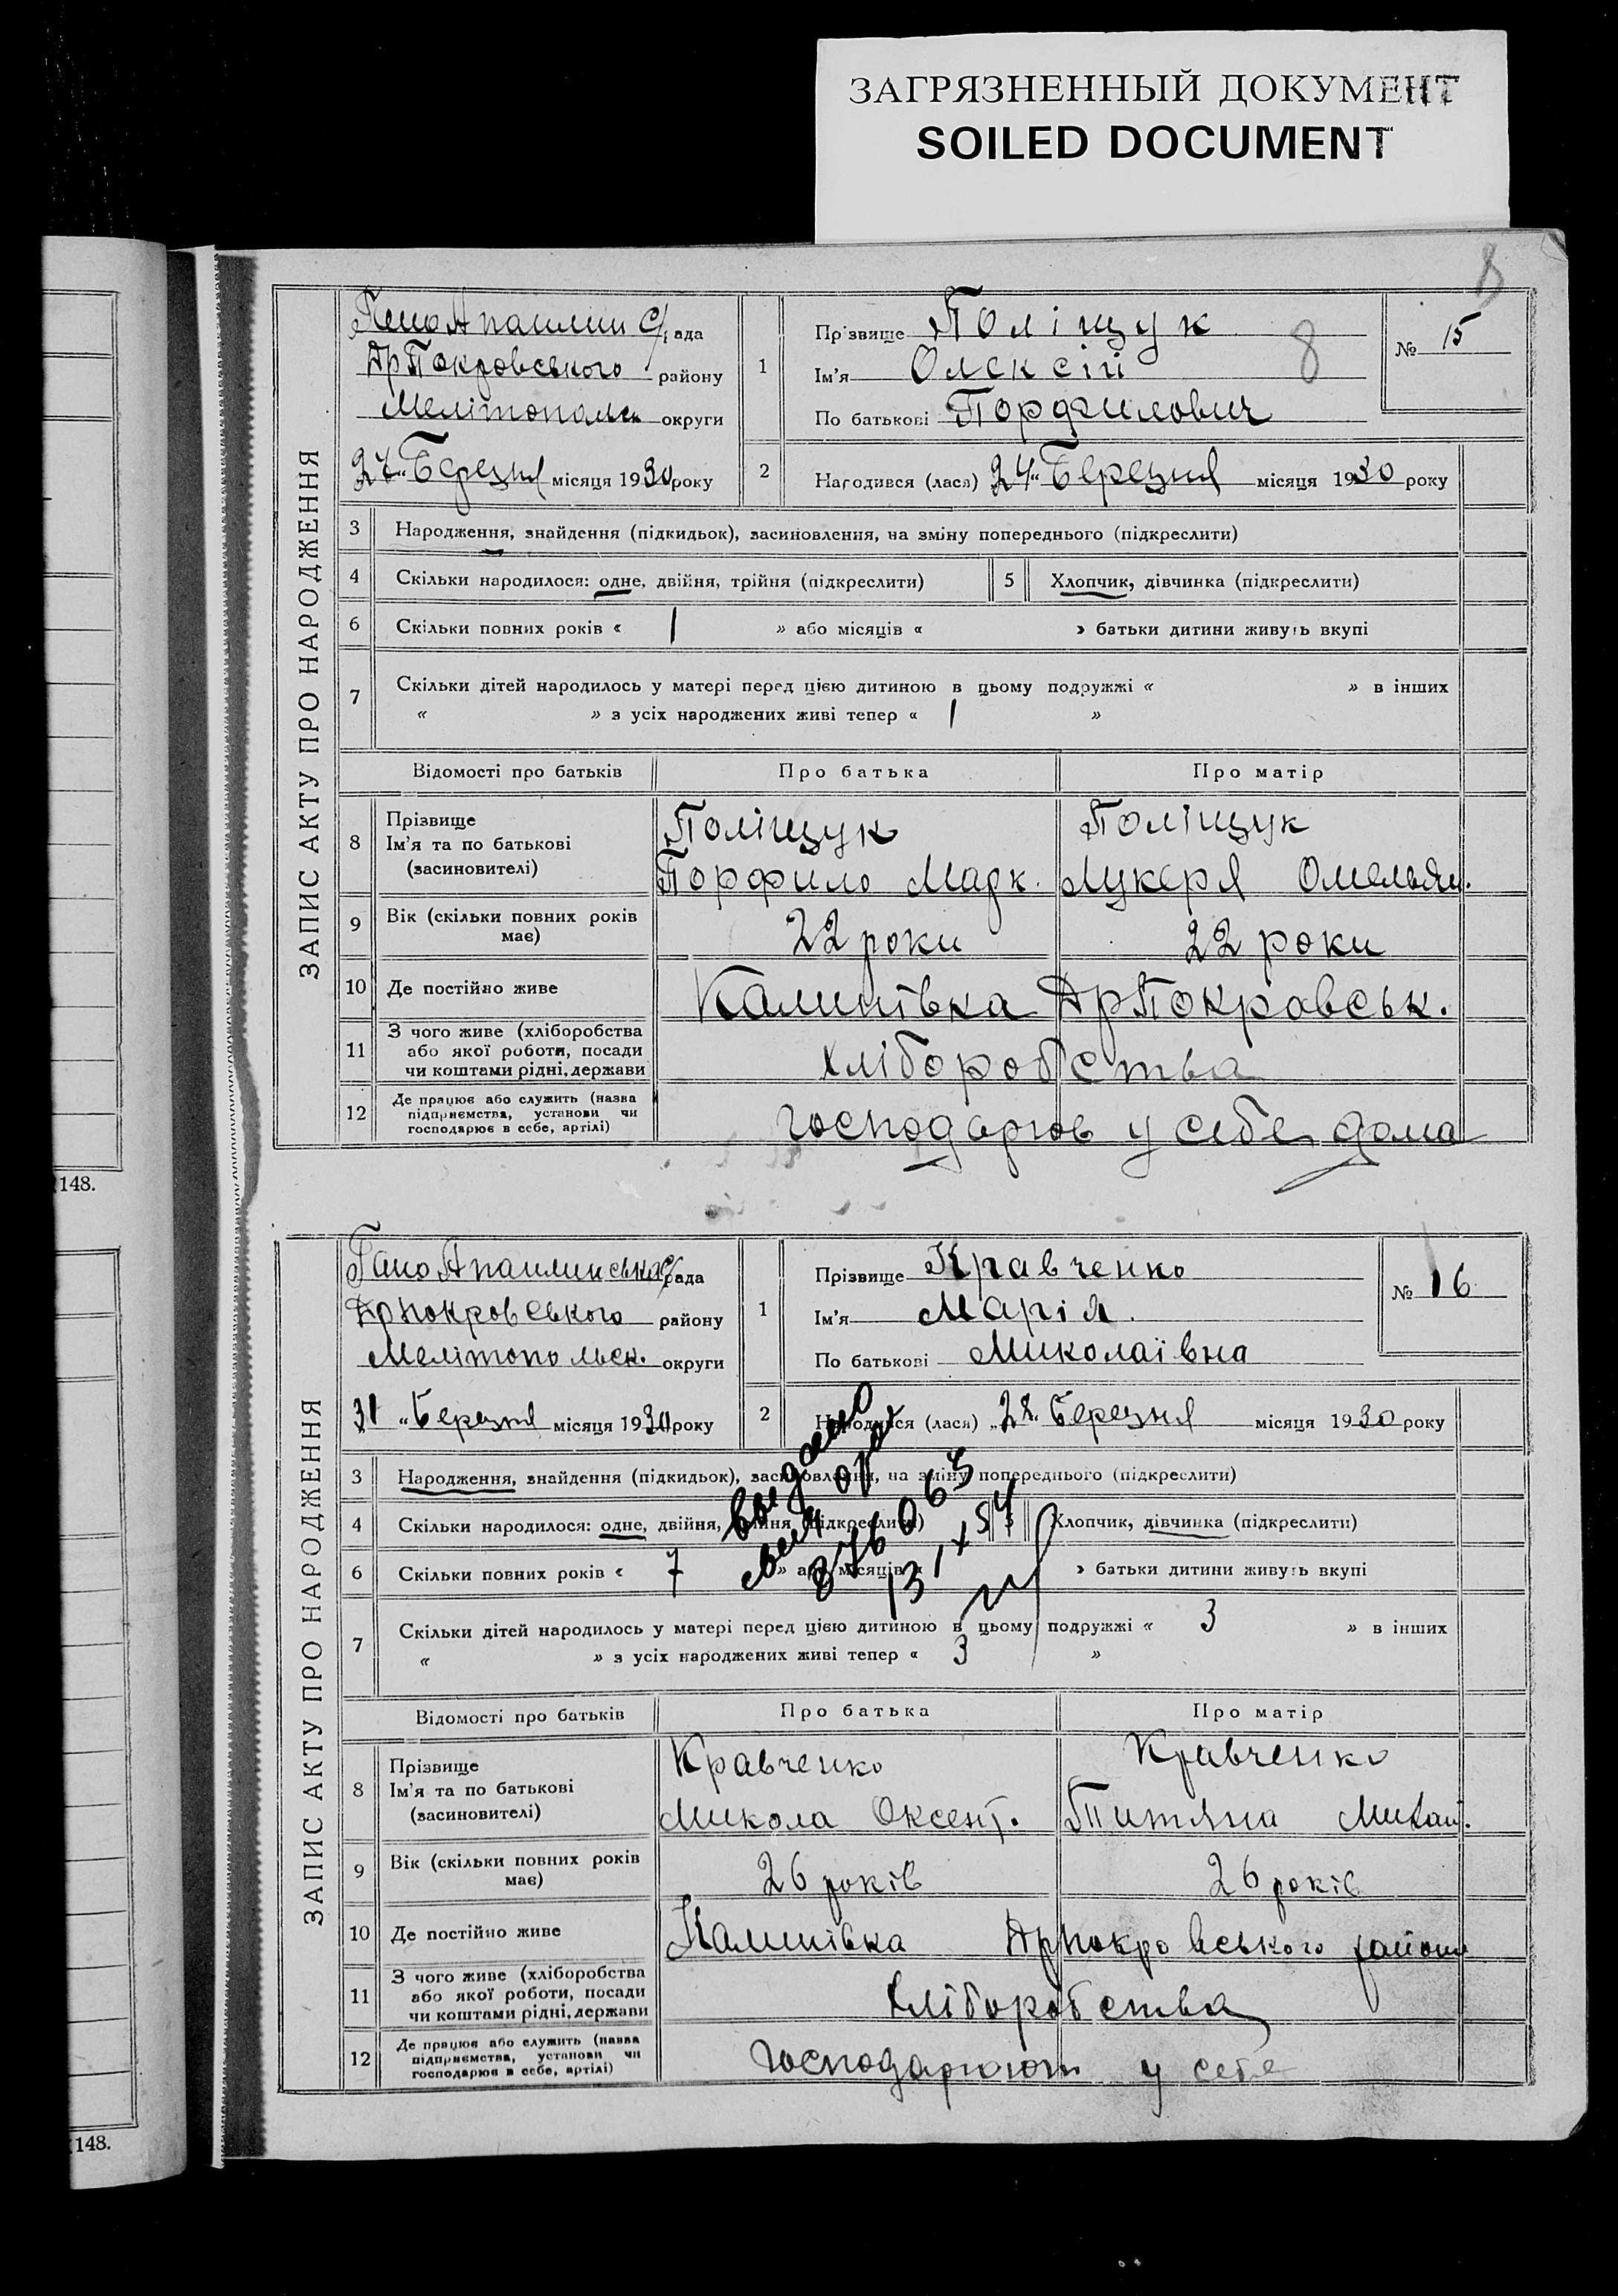 ЗАГРЯЗНЕННЫЙ ДОКУМЕНТ
SOILED DOCUMENT
8
ЗАПИС АКТУ ПРО НАРОДЖЕННЯ
С/рада
Др Покровського району
округи
Березня місяця 1930 року
1
Прізвище Поліщук
Ім'я Олексій
По батькові Порфилович
8
№ 15
2
Народився (лася) 24 " Березня місяця 1930 року
3 Народження, знайдення (підкидьок), засиновлення, на зміну попереднього (підкреслити)
4 Скільки народилося: одне, двійня, трійня (підкреслити) 5 Хлопчик, дівчинка (підкреслити)
6 Скільки повних років « 1 » або місяців « » батьки дитини живуть вкупі
7 Скільки дітей народилось у матері перед цією дитиною в цьому подружжі « » в інших
« » з усіх народжених живі тепер « 1 »
Відомості про батьків Про батька Про матір
8 Прізвище Поліщук Поліщук
Ім'я та по батькові
(засиновителі) Порфило Марк. Лукеря Омельян.
9 Вік (скільки повних років має) 22 роки 22 роки
10 Де постійно живе Калинівка ДрПокровськ.
11 З чого живе (хліборобства
або якої роботи, посади
чи коштами рідні, держави хліборобства
12 Де працює або служить (назва
підприємства, установи чи
господарює в себе, артілі) господарює у себе дома
148.
ЗАПИС АКТУ ПРО НАРОДЖЕННЯ
с/рада
Дрпокровського району
Мелітопольск. округи
31 " Березня місяця 1930 року
1
Прізвище Кравченко
Ім'я Марія.
По батькові Миколаївна
№ 16
2
Народився (лася) „28. Березня місяця 1930 року
3 Народження, знайдення (підкидьок), засиновлення, на зміну попереднього (підкреслити)
4 Скільки народилося: одне, двійня, трійня (підкреслити) 5 Хлопчик, дівчинка (підкреслити)
6 Скільки повних років « 7 » або місяців « » батьки дитини живуть вкупі
7 Скільки дітей народилось у матері перед цією дитиною в цьому подружжі « 3 » в інших
« » з усіх народжених живі тепер « 3 »
Відомості про батьків Про батька Про матір
8 Прізвище Кравченко Кравченко
Ім'я та по батькові
(засиновителі) Микола Оксент. Титяна Михай.
9 Вік (скільки повних років має) 26 років 26 років
10 Де постійно живе Калинівка Дрпокровського району
11 З чого живе (хліборобства
або якої роботи, посади
чи коштами рідні, держави хліборобства
12 Де працює або служить (назва
підприємства, установи чи
господарює в себе, артілі) господарюють у себе
148.